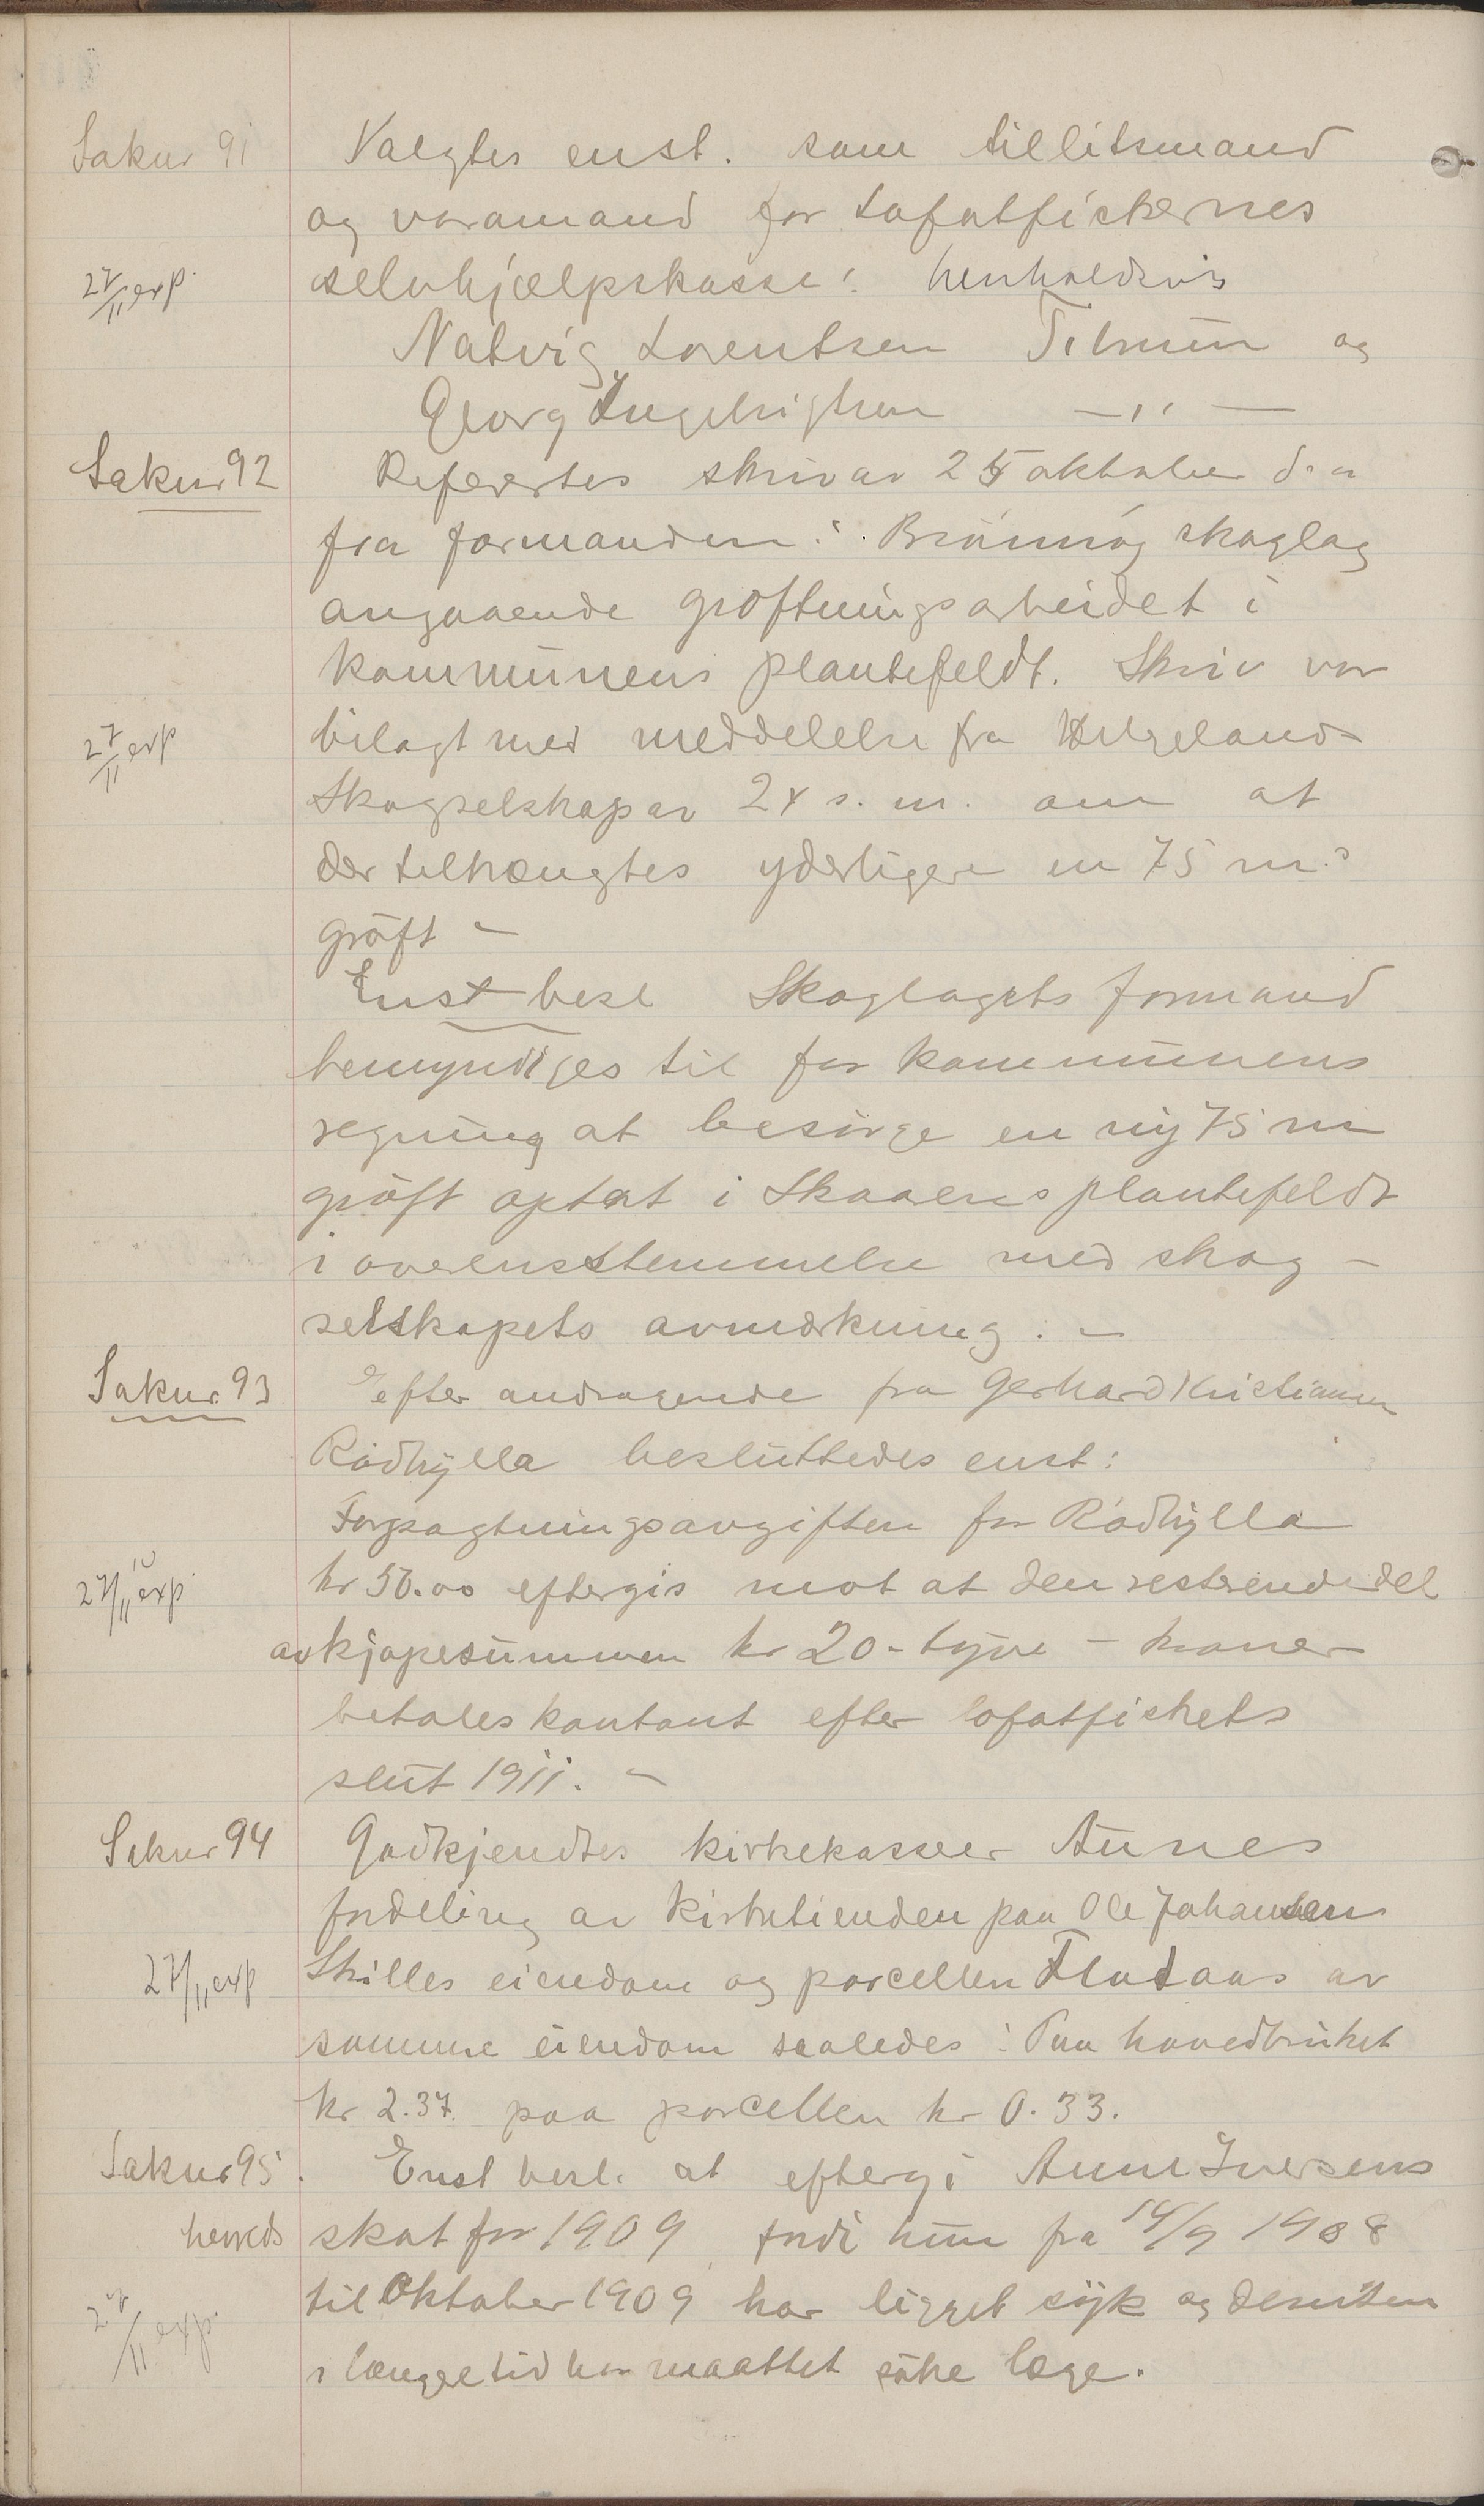 Saknr 91
Valgtes enst. som tillitsmand
og varamand for Lofotfiskernes
27/11 exp.
selvhjælpskasse: henholdsvis
Natvig Lorentsen Tilrum og
Georg Ingebrigtsen —,,—
Saknr 92
Refertes skriv av 25 oktober d. a
fra formanden i Brönnöy skoglag
angaaende grøftningsarbeidet i
kommunens plantefeldt. Skriv var
27/11 exp
bilagt med meddelelse fra Helgeland
Skogselskap av 24 s. m. om at
der tilträngtes yderligere en 75 m.s
gröft -
Enst besl Skoglagets formand
bemyndiges til for kommunens
regning at besörge en ny 75 m
gröft optat i Skaarens plantefeldt
i overensstemmelse med skog-
selskapets avmerkning. -
Saknr. 93
Efter andragende fra Gerhard Kristiansen
Rödhylla besluttedes enst:
Forpagtningsavgiften for Rödhylla
27/11 10 exp.
kr 50.00 eftergis mot at den resterende del
av kjøpesummen kr 20 - tyve - kroner
betales kontant efter lofotfiskets
slut 1911. -
Saknr 94
Godkjendtes kirkekasserer Aunes
fordeling av kirketienden paa Ole Johansens
27/11 exp
Skilles eiendom og parcellen Flataas av
samme eiendom saaledes: Paa hovedbruket
kr 2.37. paa parcellen kr 0.33.
Saknr 95.
Enst besl. at eftergi Anne Iversens
herreds
skat for 1909, fordi hun fra 14/9 1908
til Oktober 1909 har ligget syk og desuten
27/11 exp.
i længere tid har maattet söke læge.